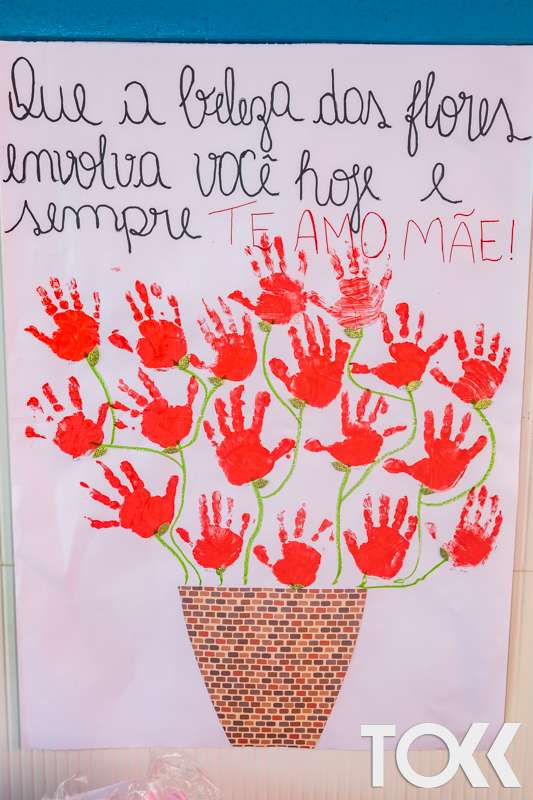 Que a beleza das flores
envolva você hoje e
sempre TE AMO, MÃE!
TOKK